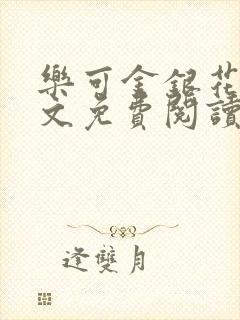 樂可金銀花
文免費閱讀
逢雙月